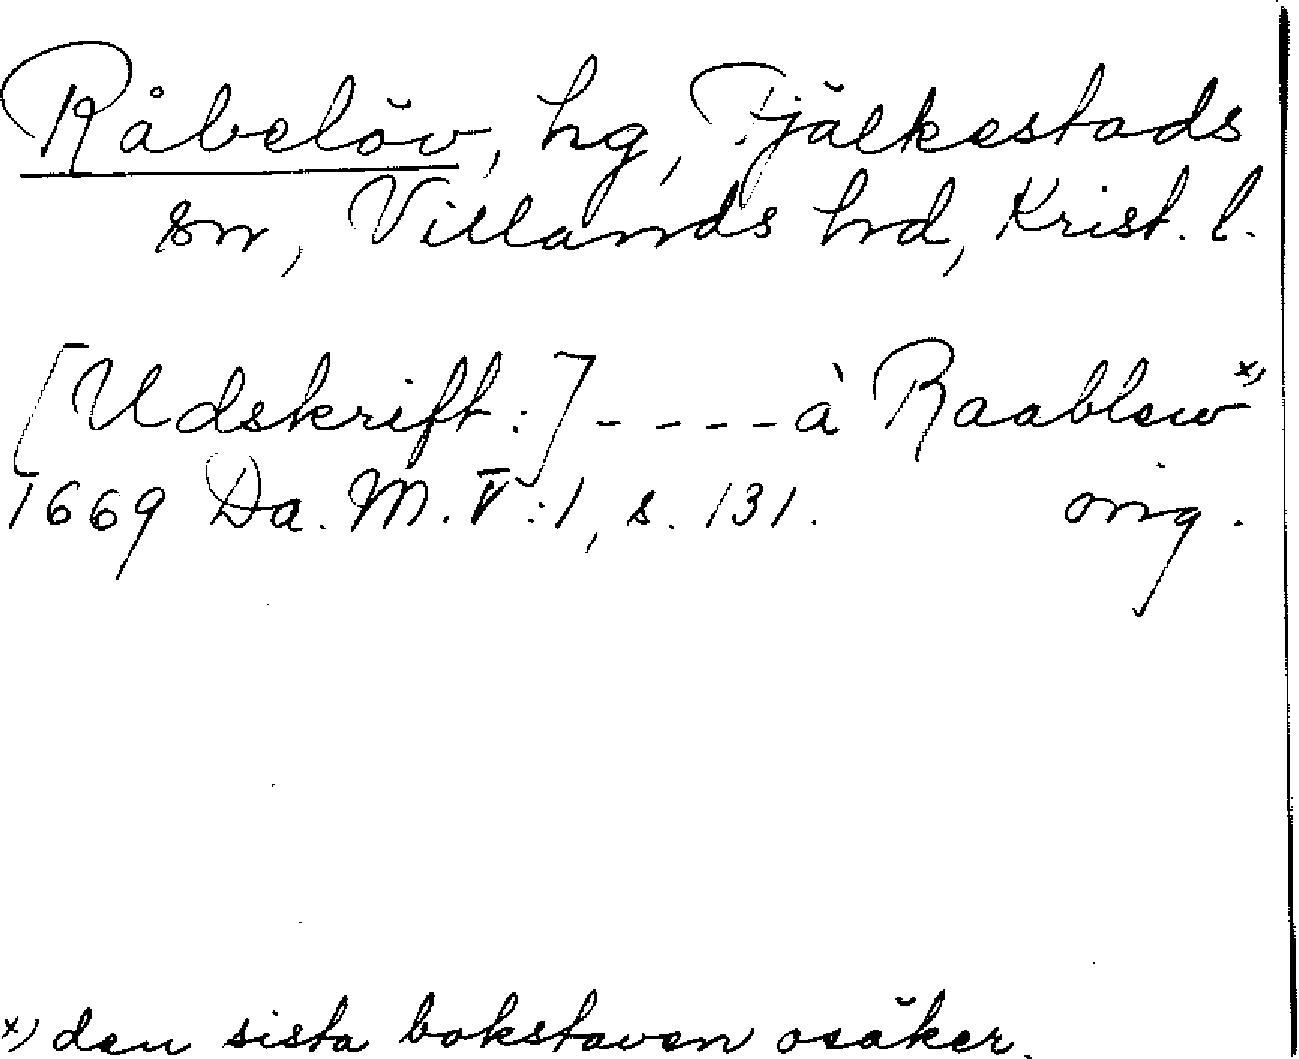 Råbelöv, hg, Fjälkestads
sn, Villands hd, Krist. l.
[Udskrift:] ----- à Raablew x)
1669 Da. M. V:1, s. 131. orig.
x) den sista bokstaven osäker.